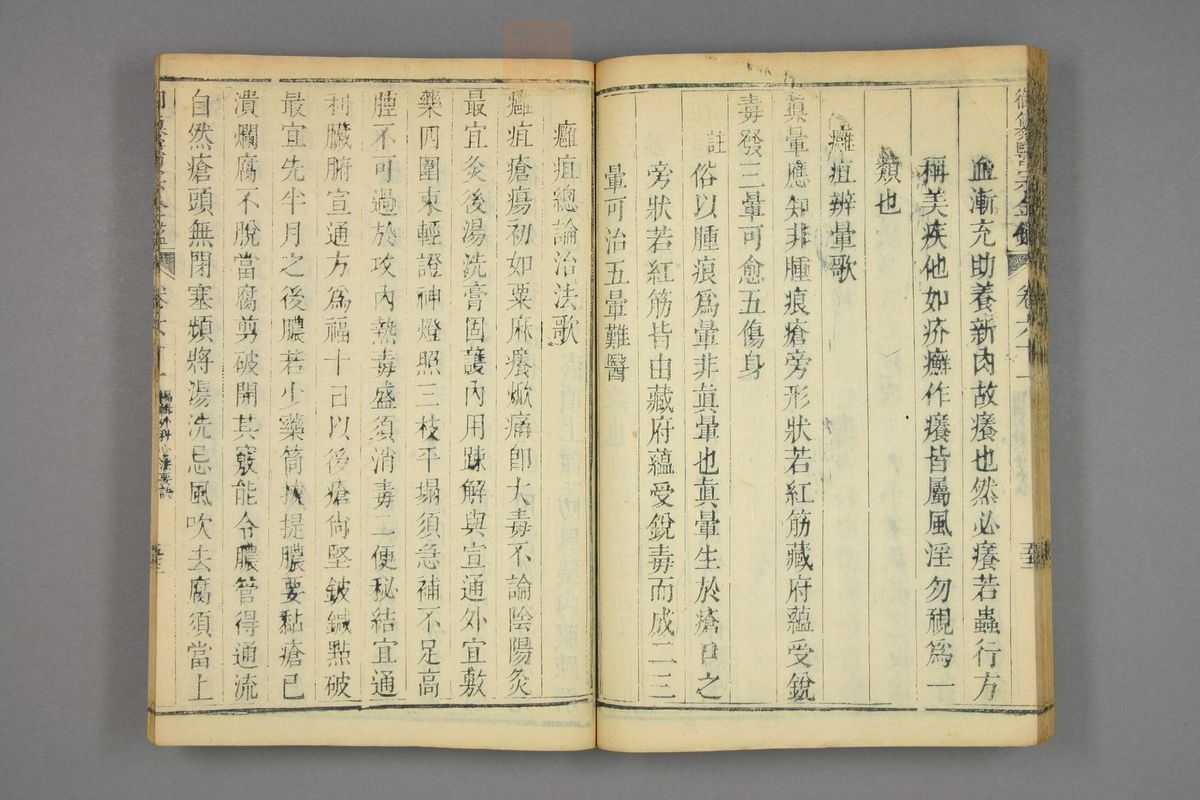 御纂醫宗金鑑 卷六十一
血漸充助養新肉故癢也然必癢若蟲行方
稱美疾他如疥癬作癢皆屬風淫勿視爲一
類也
癰疽辨暈歌
眞暈應知非腫痕瘡旁形狀若紅筋藏府蘊受銳
毒發三暈可愈五傷身
註
俗以腫痕爲暈非眞暈也眞暈生於瘡口之
旁狀若紅筋皆由藏府蘊受銳毒而成二三
暈可治五暈難醫
癰疽總論治法歌
癰疽瘡瘍初如粟麻癢焮痛即大毒不論陰陽灸
最宜灸後湯洗膏固護內用疎解與宣通外宜敷
藥四圍束輕證神燈照三枝平塌須急補不足高
腫不可過於攻內熱毒盛須消毒二便秘結宜通
利臟腑宣通方爲福十日以後瘡尙堅鈹鍼點破
最宜先半月之後膿若少藥筒拔提膿要黏瘡已
潰爛腐不脫當腐剪破開其竅能令膿管得通流
自然瘡頭無閉塞頻將湯洗忌風吹去腐須當上
編輯外科心法要訣